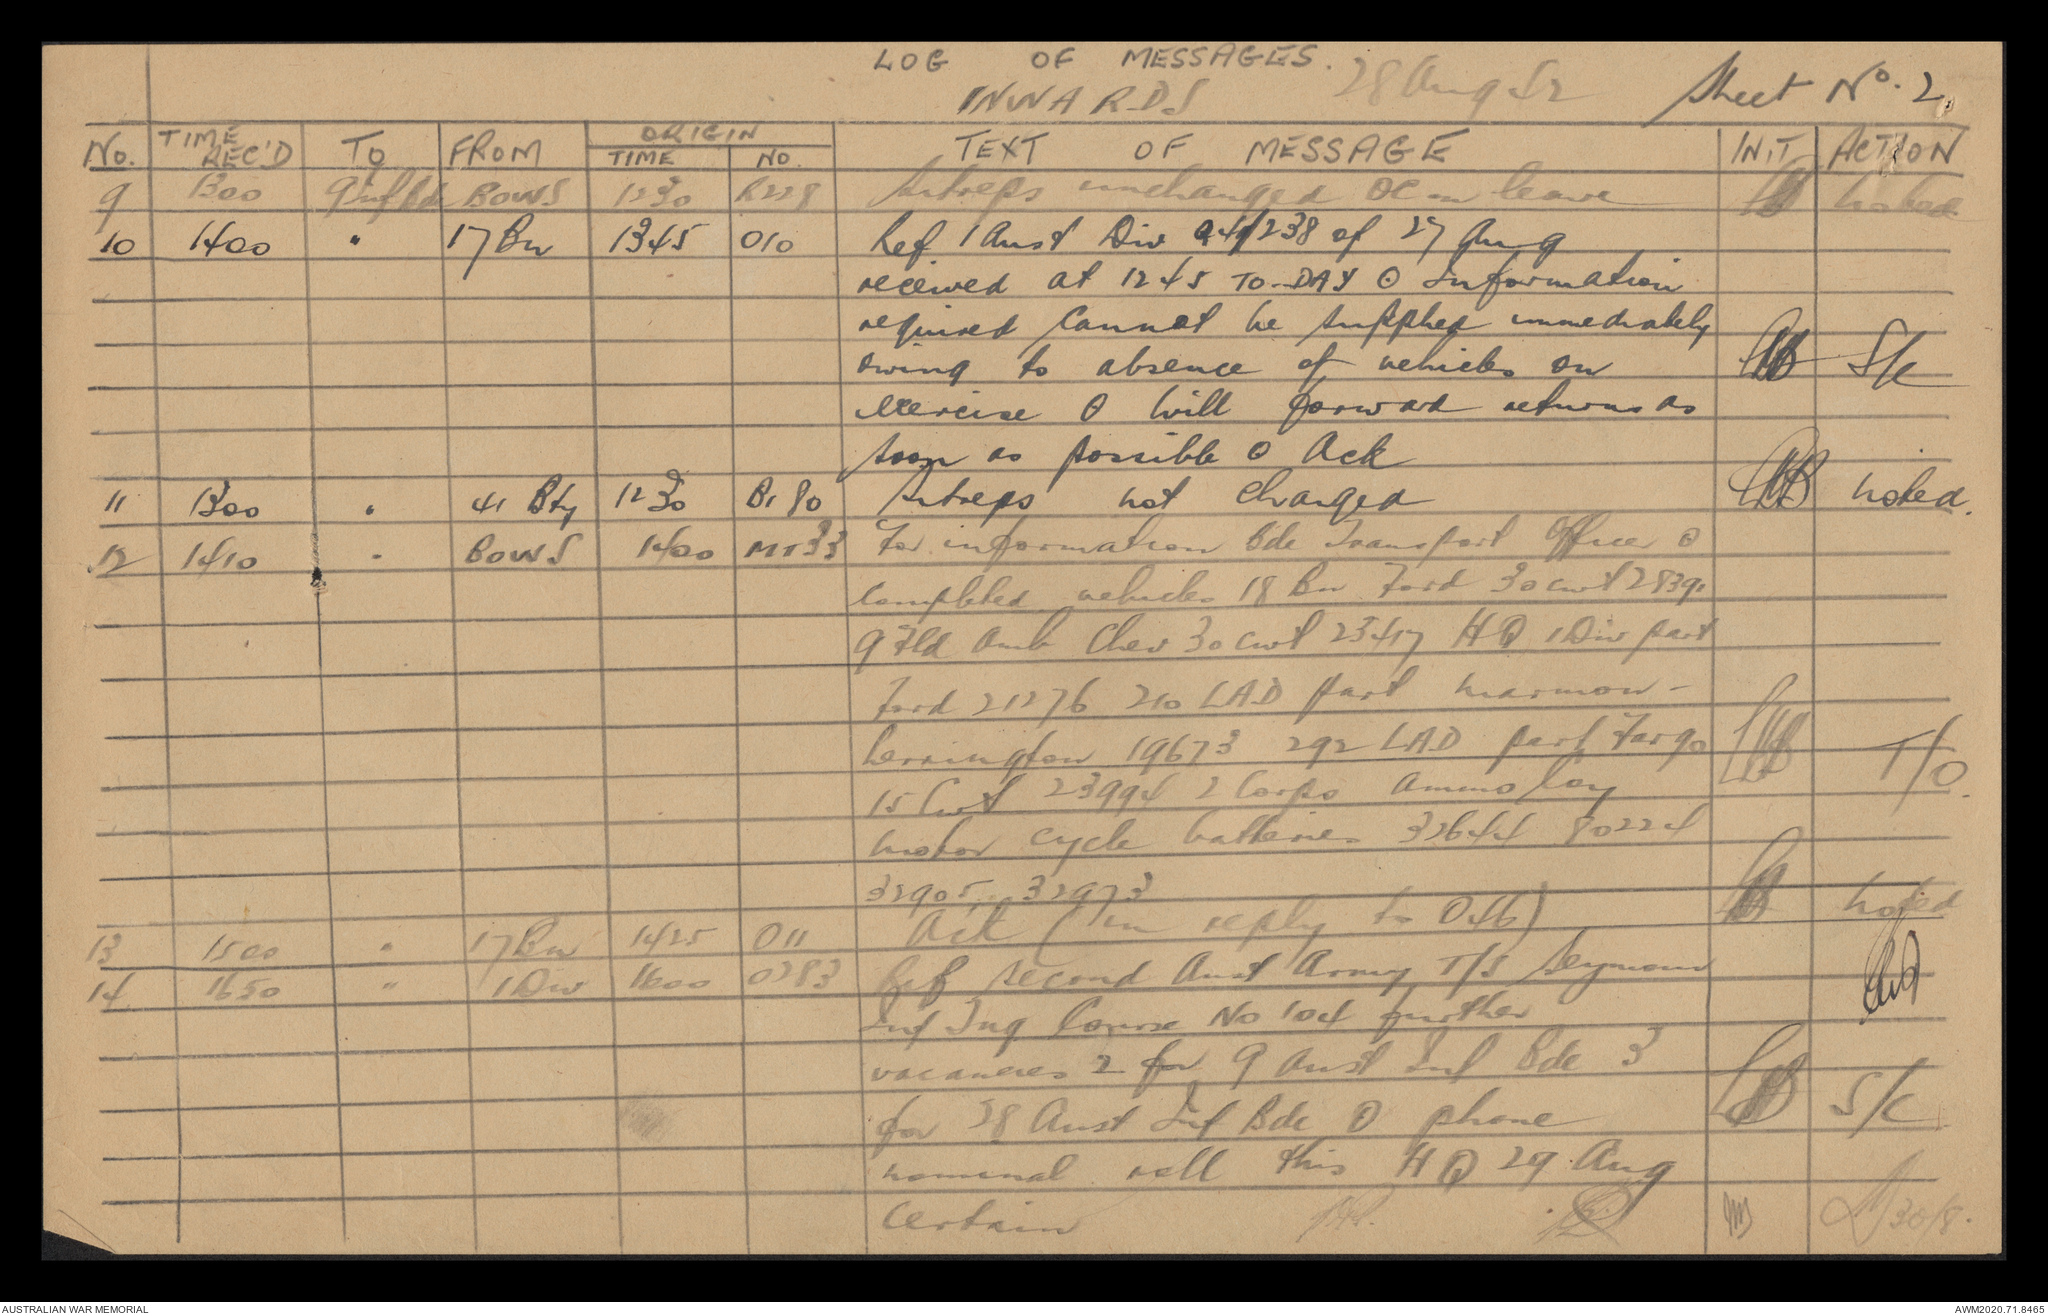 LOG OF MESSAGES.
INWARDS 28 Aug 42 Sheet No. 2.
No. TIME REC'D TO FROM ORIGIN TIME NO. TEXT OF MESSAGE INIT ACTION
9 1300 9 Inf Bde BOWS 1230 R228 Sitreps unchanged OC on leave noted
10 1400 " 17 Bn 1345 O10 Ref 1 Aust Div 238 of 27 Aug
received at 1245 TO-DAY O Information
required cannot be supplied immediately
owing to absence of vehicles on S/C
exercise O Will forward returns as
soon as possible O Ack
11 1300 " 41 Bty 1230 Br 80 Sitreps not changed noted.
12 1410 " BOWS 1400 MT33 For information Bde Transport Officer O
completed vehicles 18 Bn Ford 30 cwt 28391
9 Fld Amb Chev 30 cwt 23417 HQ 1 Div part
Ford 21276 210 LAD part marmon-
herrington 19673 292 LAD part Fargo T/O.
15 Cwt 23994 2 Corps Ammo Coy
motor cycle batteries 32644 80224
32905 32973
13 1500 " 17 Bn 1425 O11 Ack (in reply to O46) noted
14 1650 " 1 Div 1600 O383 Ref second Aust Army T/S Seymour
Inf Tng Course No 104 further
vacancies 2 for 9 Aust Inf Bde 3
for 28 Aust Inf Bde O phone S/C
nominal roll this HQ 29 Aug
certain 30/8.
AUSTRALIAN WAR MEMORIAL AWM2020.71.8465